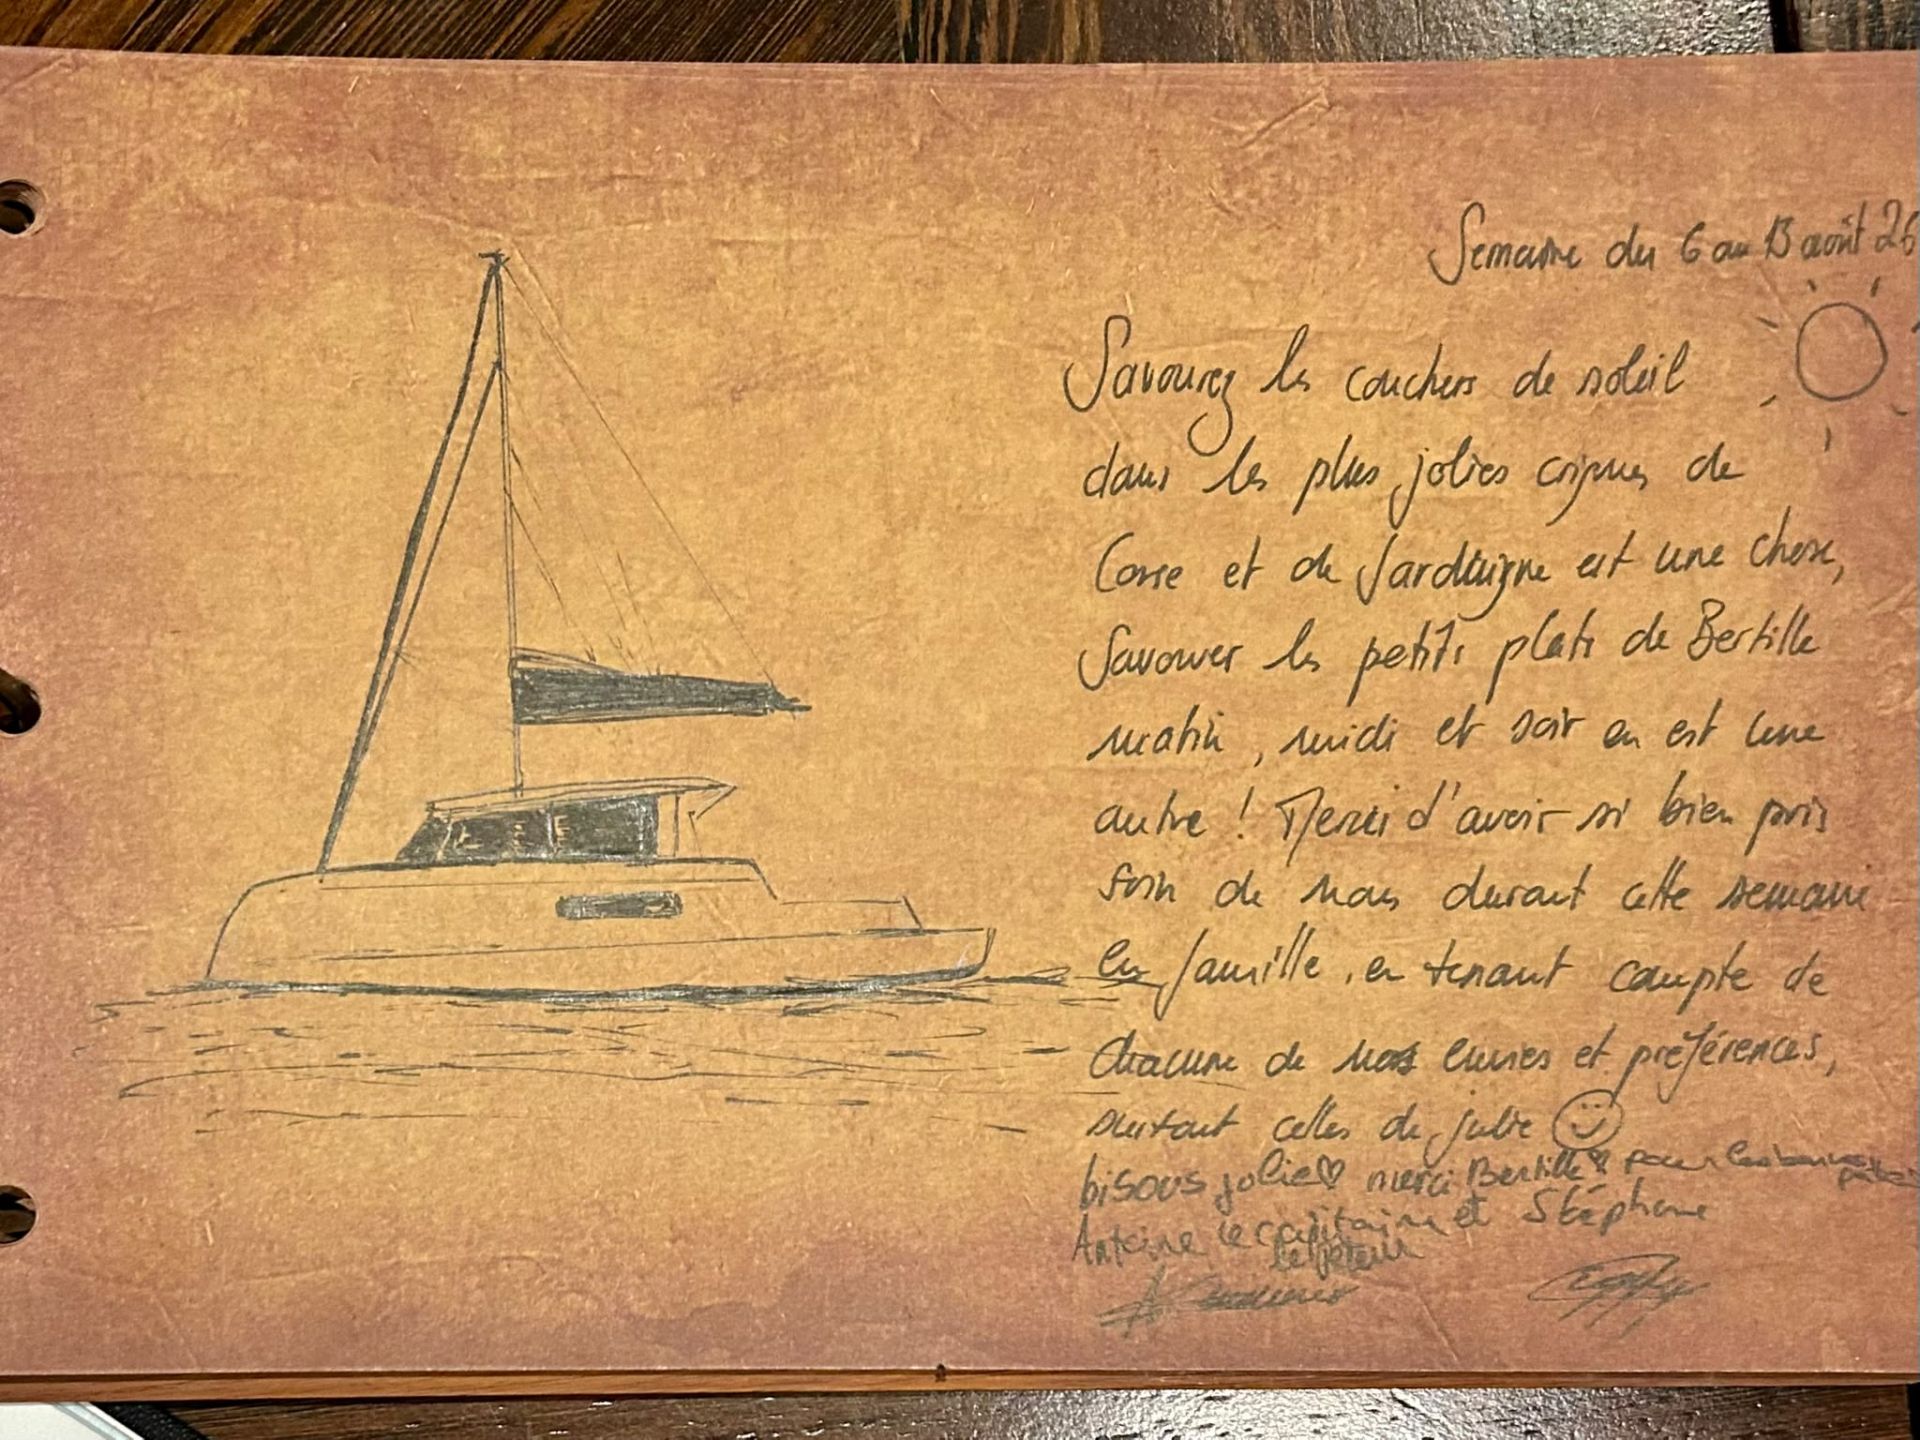 Semaine du 6 au 13 août 26
Savourez les couchers de soleil
dans les plus jolies criques de
Corse et de Sardaigne est une chose,
Savourer les petits plats de Bertille
matin, midi et soir en est une
autre ! Merci d'avoir si bien pris
soin de nous durant cette semaine
en famille, en tenant compte de
chacune de nos envies et préférences,
surtout celles de Julie
bisous jolie merci Bertille pour les
Antoine le capitaine et Stéphane